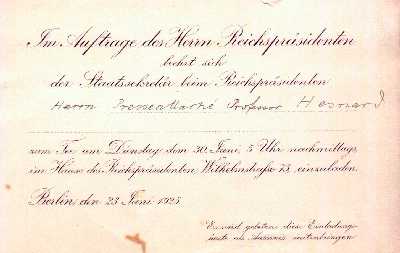 Im Auftrage des Herrn Reichspräsidenten
beehrt sich
der Staatssekretär beim Reichspräsidenten
Herrn Presseattaché Professor Hesnard
zum Tee am Dienstag dem 30. Juni, 5 Uhr nachmittags,
im Hause des Reichspräsidenten, Wilhelmstraße 73, einzuladen.
Berlin, den 23. Juni 1925.
Es wird gebeten, diese Einladung
heute als Ausweis mitzubringen